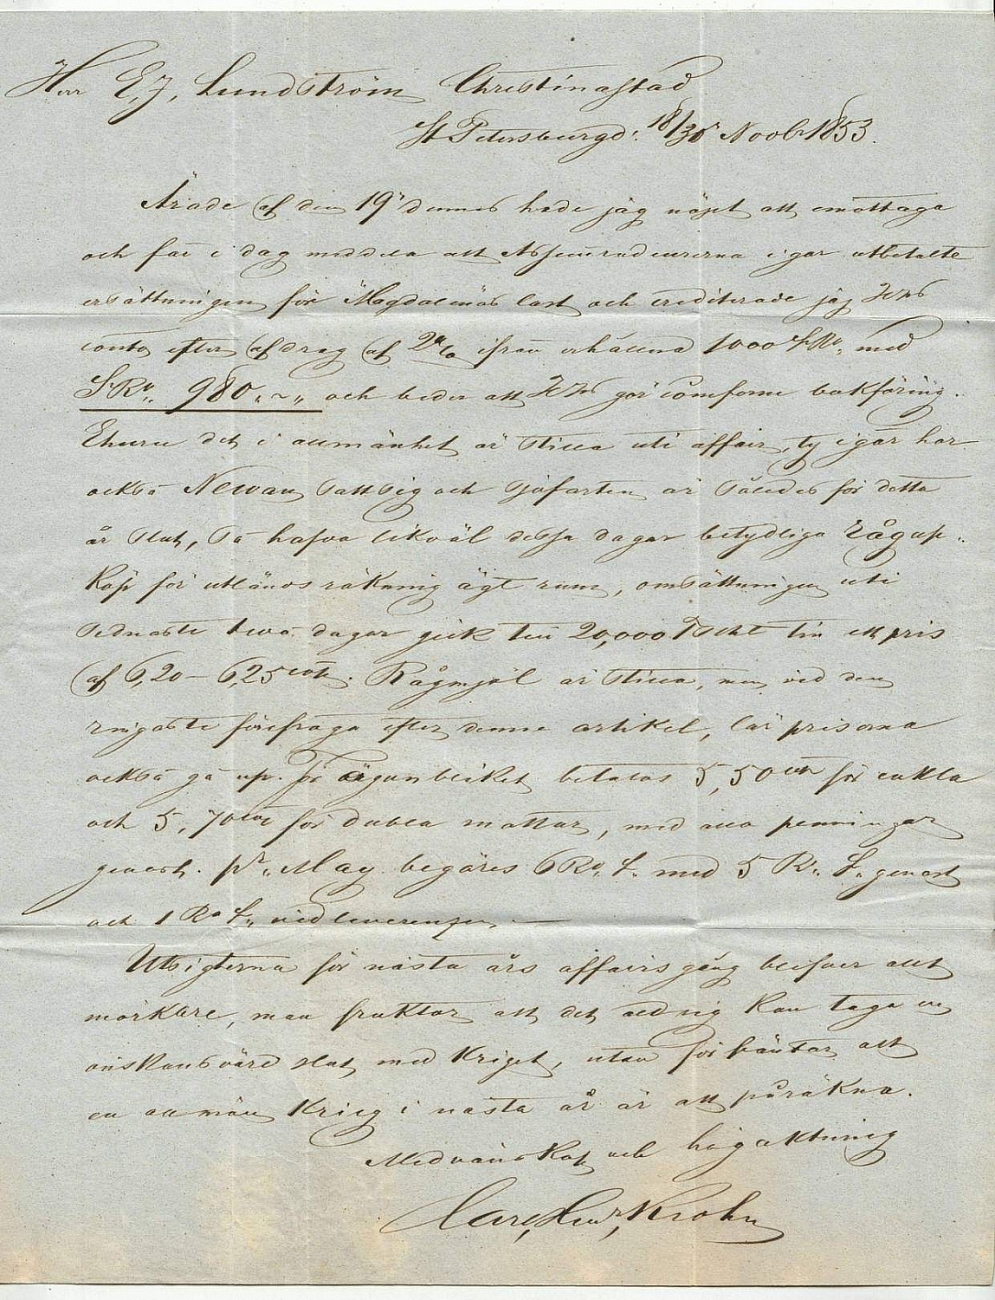 Herr E, J, Lundström Christinastad
St Petersburg d: 18/30 Novbr 1853.
Ärade af den 19 dennes hade jag nöjet att emottaga
och får i dag meddela att Assuradeurerna i går utbetalte
ersättningen för Magdalenas last och crediterade jag Hrns
conto efter afdrag af 2% ifrån erhållna 1000 SRo, med
SRo. 980.~,, och beder att Hrn gör comforme bokföring.
Ehuru det i allmänhet är stilla uti affair, ty i går har
också Newan satt sig och sjöfarten är således för detta
år slut, så hafva likväl dessa dagar betydliga Råg up-
köp för utlänsk räkning ägt rum, omsättningen uti
sednaste två dagar gick till 20,000 Tscht till ett pris
af 6,20 – 6,25 cop. Rågmjöl är stilla, men vid den
ringaste förefråga efter denne artikel, lär priserna
också gå up. På ögonblicket betalas 5,50 cop för enkla
och 5,70 cop för dubla mattor, med alla penningar
genast. pr. May begäres 6 Ro. S. med 5 Ro. S. genast
och 1 Ro S. vid leverenzen.
Utsigterna för nästa års affairsgång blifver allt
mörkare, man fruktar att det aldrig kan taga en
önskansvärd slut med Kriget, utan förväntar att
en allmän Krieg i nästa år är att påräkna.
Med vänskap och högaktning
Carl Hinr. Krohn